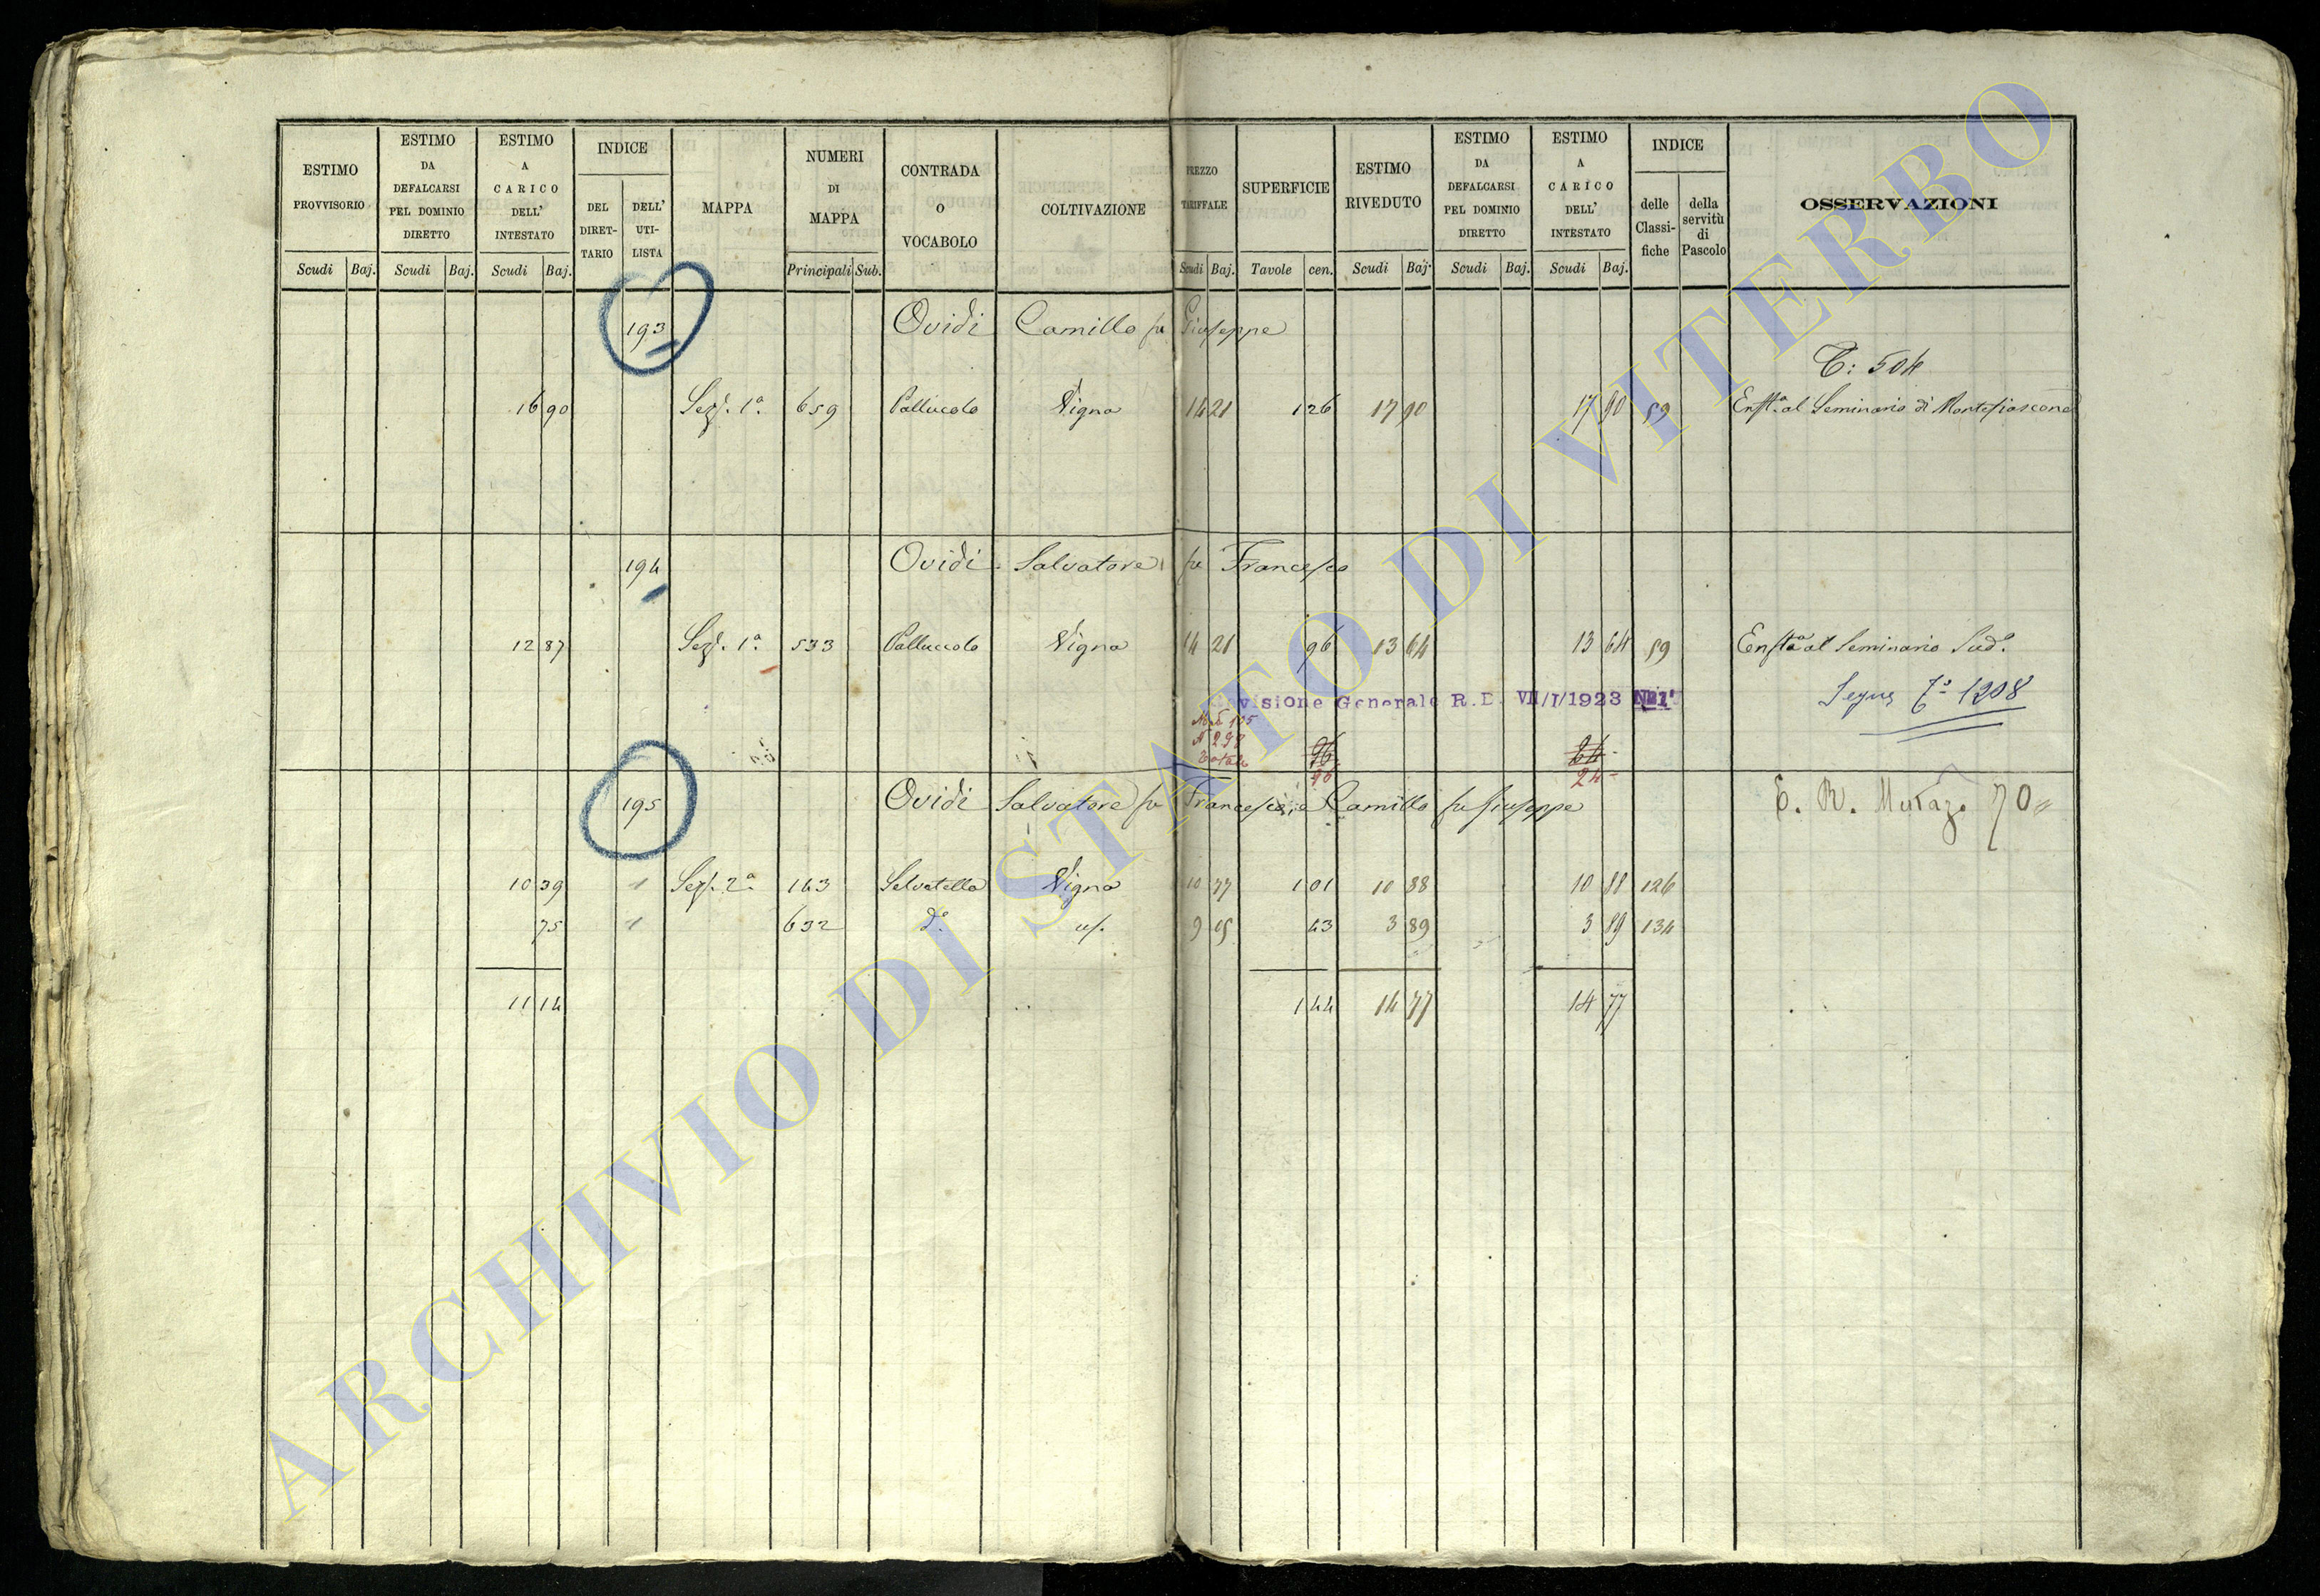 ESTIMO PROVVISORIO
ESTIMO DA DEFALCARSI PEL DOMINIO DIRETTO
ESTIMO A CARICO DELL' INTESTATO
INDICE
DEL DIRET-TARIO
DELL' UTI-LISTA
MAPPA
NUMERI DI MAPPA
CONTRADA O VOCABOLO
COLTIVAZIONE
PREZZO TARIFFALE
SUPERFICIE
ESTIMO RIVEDUTO
ESTIMO DA DEFALCARSI PEL DOMINIO DIRETTO
ESTIMO A CARICO DELL' INTESTATO
INDICE
delle Classi-fiche
della servitù di Pascolo
OSSERVAZIONI
Scudi Baj. Scudi Baj. Scudi Baj. Principali Sub. Scudi Baj. Tavole cen. Scudi Baj. Scudi Baj. Scudi Baj.
193 Ovidi Camillo fu Giuseppe
T: 504
16 90 Sez. 1a. 659 Pallucolo Vigna 14 21 1 26 17 90 17 90 59 Enfta al Seminario di Montefiascone
194 Ovidi Salvatore fu Francesco
12 87 Sez. 1a. 533 Palluccolo Vigna 14 21 96 13 64 13 64 59 Enfta al Seminario Sudo.
Revisione Generale R.D. VII/I/1923 No 17
Segue To 1208
N 298
Totale 96 24
96 24
195 Ovidi Salvatore fu Francesco, e Camillo fu Giuseppe
70
10 39 1 Sez. 2a. 143 Selvatella Vigna 10 77 1 01 10 88 10 88 126
75 1 632 do. 9 05 43 3 89 3 89 134
11 14 1 44 14 77 14 77
ARCHIVIO DI STATO DI VITERBO